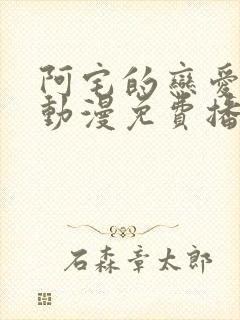 阿宅的戀愛
動漫免費播
石森章太郎